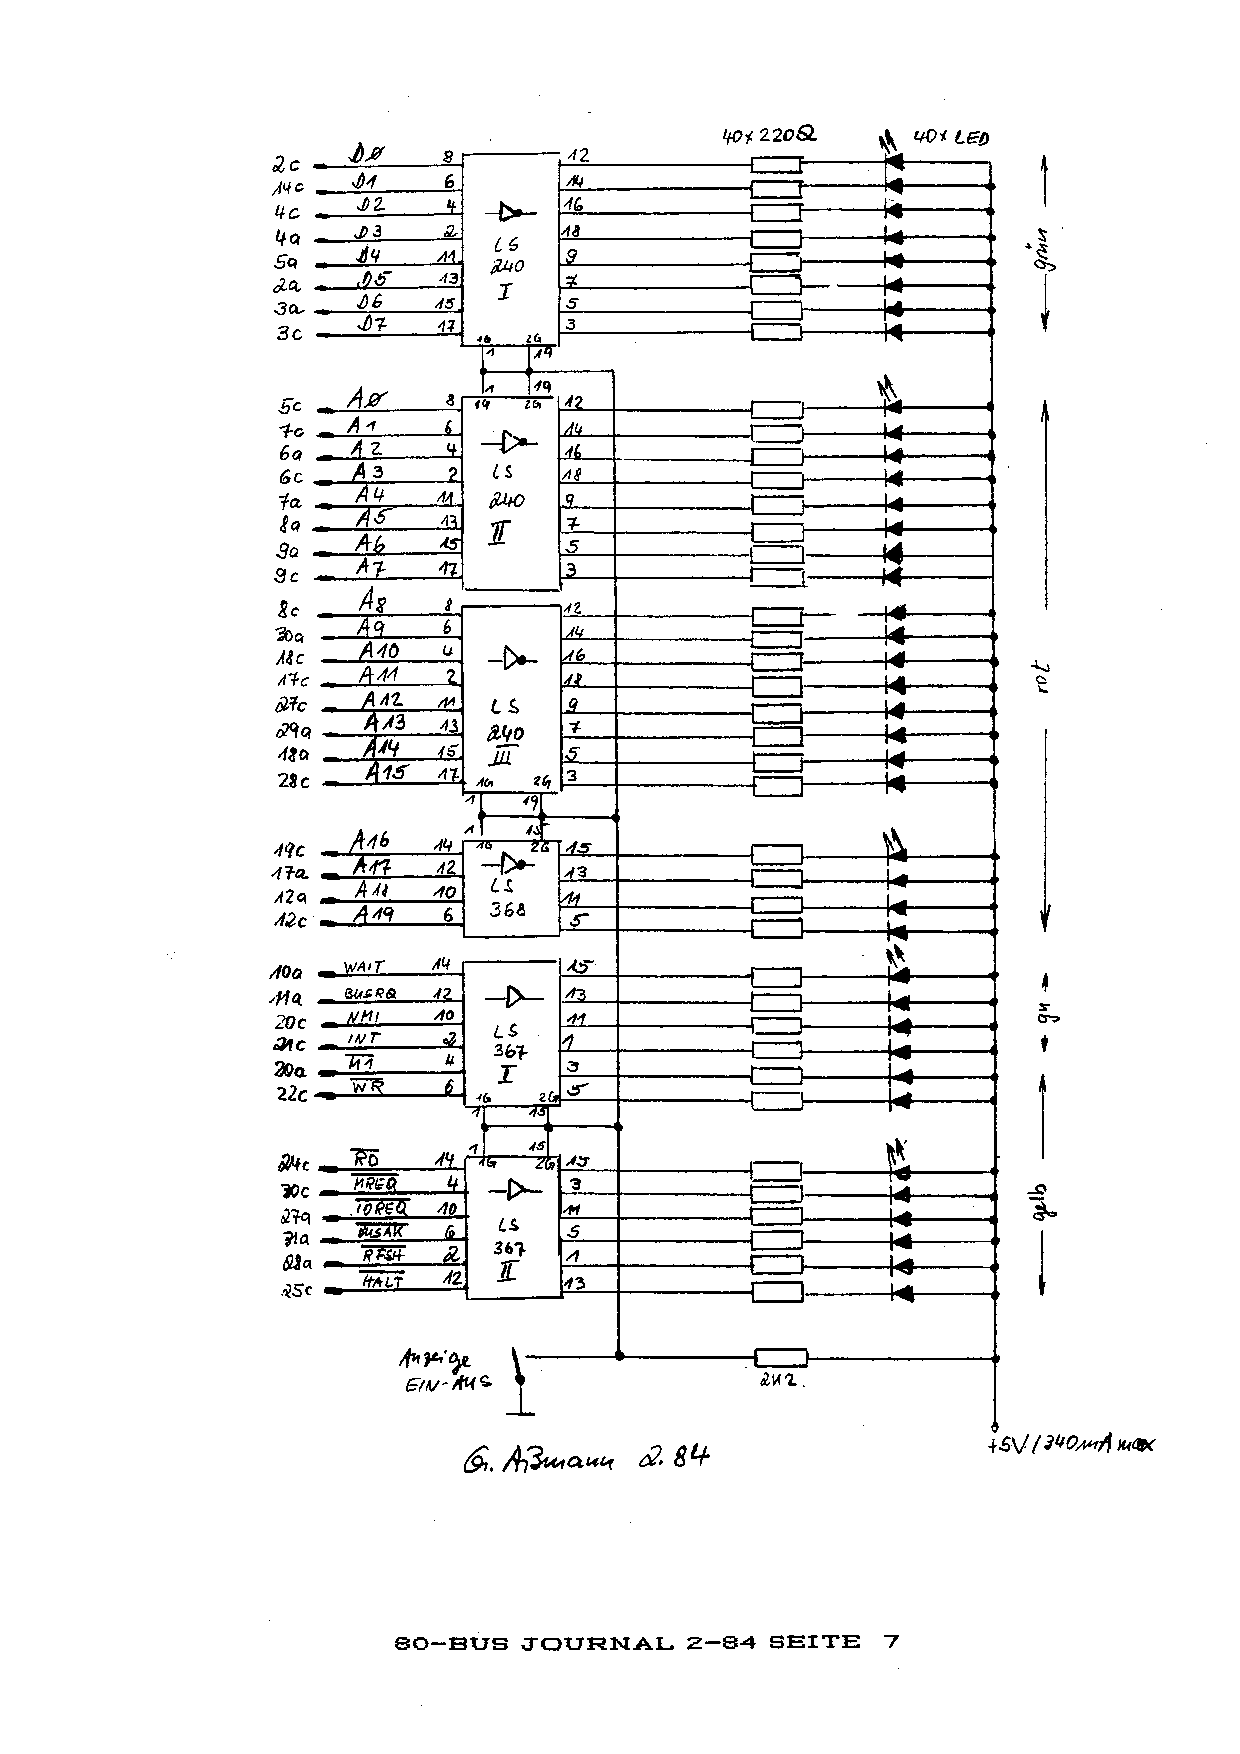 40x220Ω 40x LED
2c D0 8 12
14c D1 6 14
4c D2 4 16
4a D3 2 18
5a D4 11 9
2a D5 13 7
3a D6 15 5
3c D7 17 3
LS
240
I
1G 2G
1 19
grün
1 19
1G 2G
5c A0 8 12
7c A1 6 14
6a A2 4 16
6c A3 2 18
7a A4 11 9
8a A5 13 7
9a A6 15 5
9c A7 17 3
LS
240
II
8c A8 8 12
30a A9 6 14
18c A10 4 16
17c A11 2 18
27c A12 11 9
29a A13 13 7
18a A14 15 5
28c A15 17 3
LS
240
III
1G 2G
1 19
rot
1 15
1G 2G
19c A16 14 15
17a A17 12 13
12a A18 10 11
12c A19 6 5
LS
368
10a WAIT 14 15
11a BUSRQ 12 13
20c NMI 10 11
21c INT 2 1
20a M1 4 3
22c WR 6 5
LS
367
I
1G 2G
1 15
gn
1 15
1G 2G
24c RD 14 15
30c MREQ 4 3
27a IOREQ 10 11
31a BUSAK 6 5
28a RFSH 2 1
25c HALT 12 13
LS
367
II
gelb
Anzeige
EIN-AUS
2K2
+5V/340mA max
G. Aßmann 2.84
80-BUS JOURNAL 2-84 SEITE 7